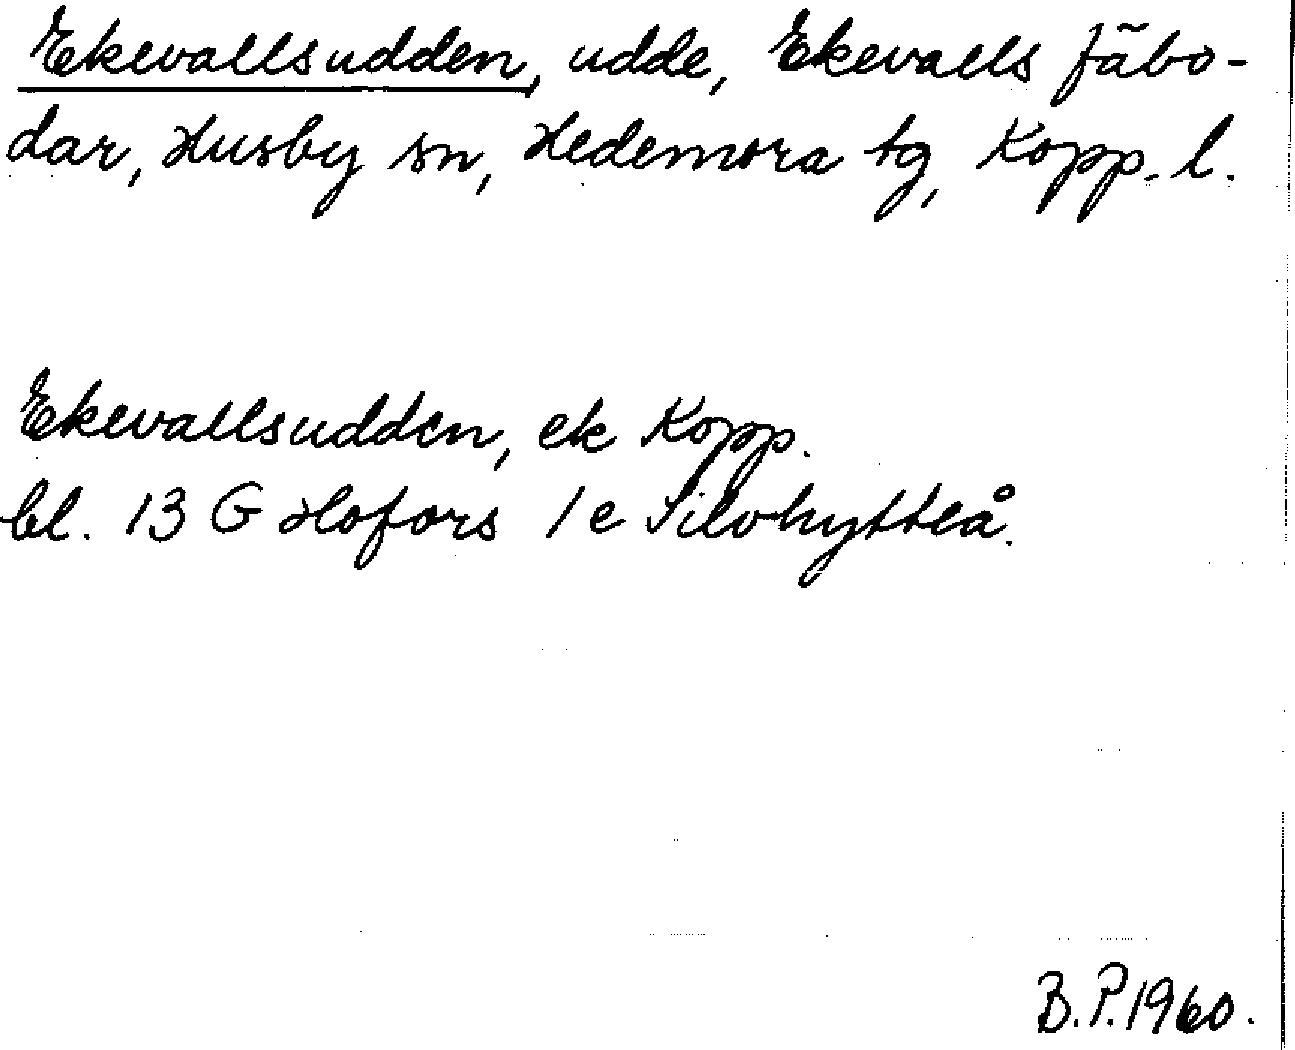 Ekevallsudden, udde, Ekevalls fäbo-
dar, Husby sn, Hedemora tg, Kopp. l.
Ekevallsudden, ek Kopp.
bl. 13 G Hofors 1 e Silvhytteå.
B.P. 1960.